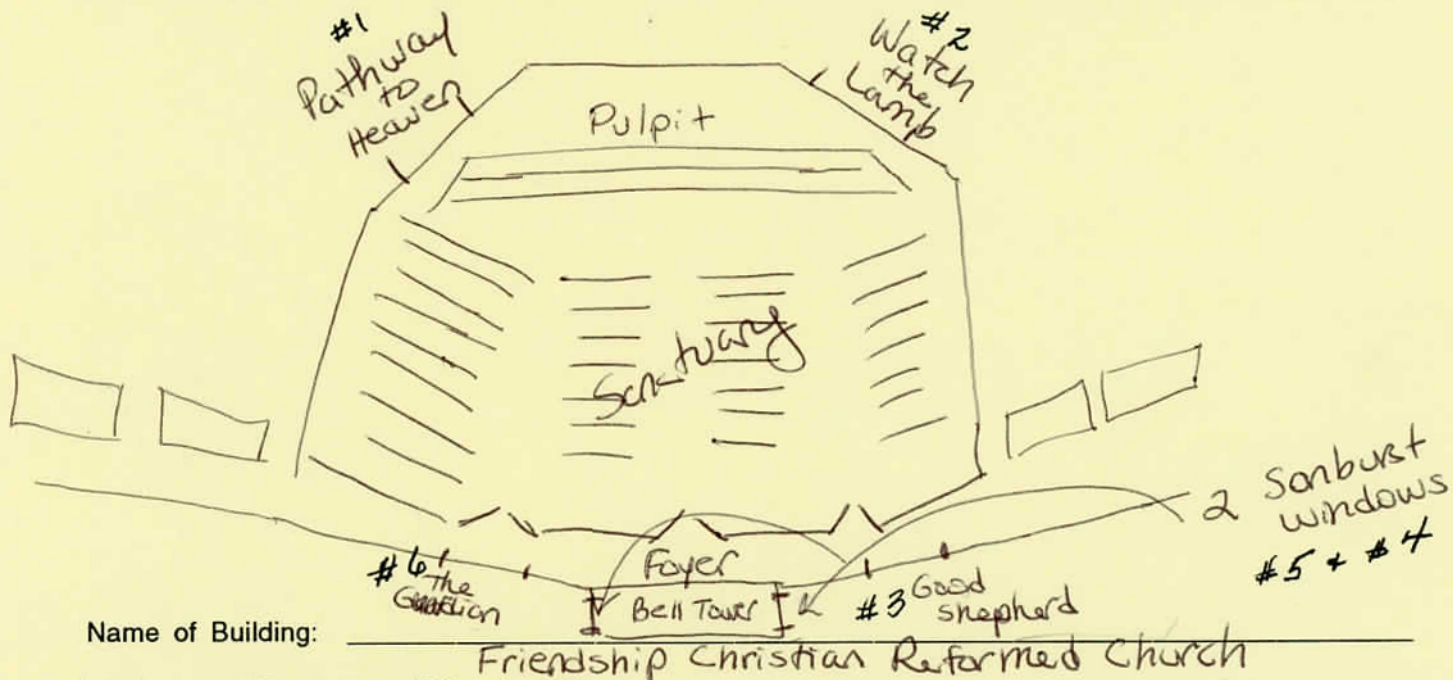 #1
Pathway
to
Heaven
#2
Watch
the
Lamb
Pulpit
Sanctuary
2 Sonburst
windows
#5 + #4
Foyer
#6 The
Guardian
Bell Tower
#3 Good
shepherd
Name of Building: Friendship Christian Reformed Church